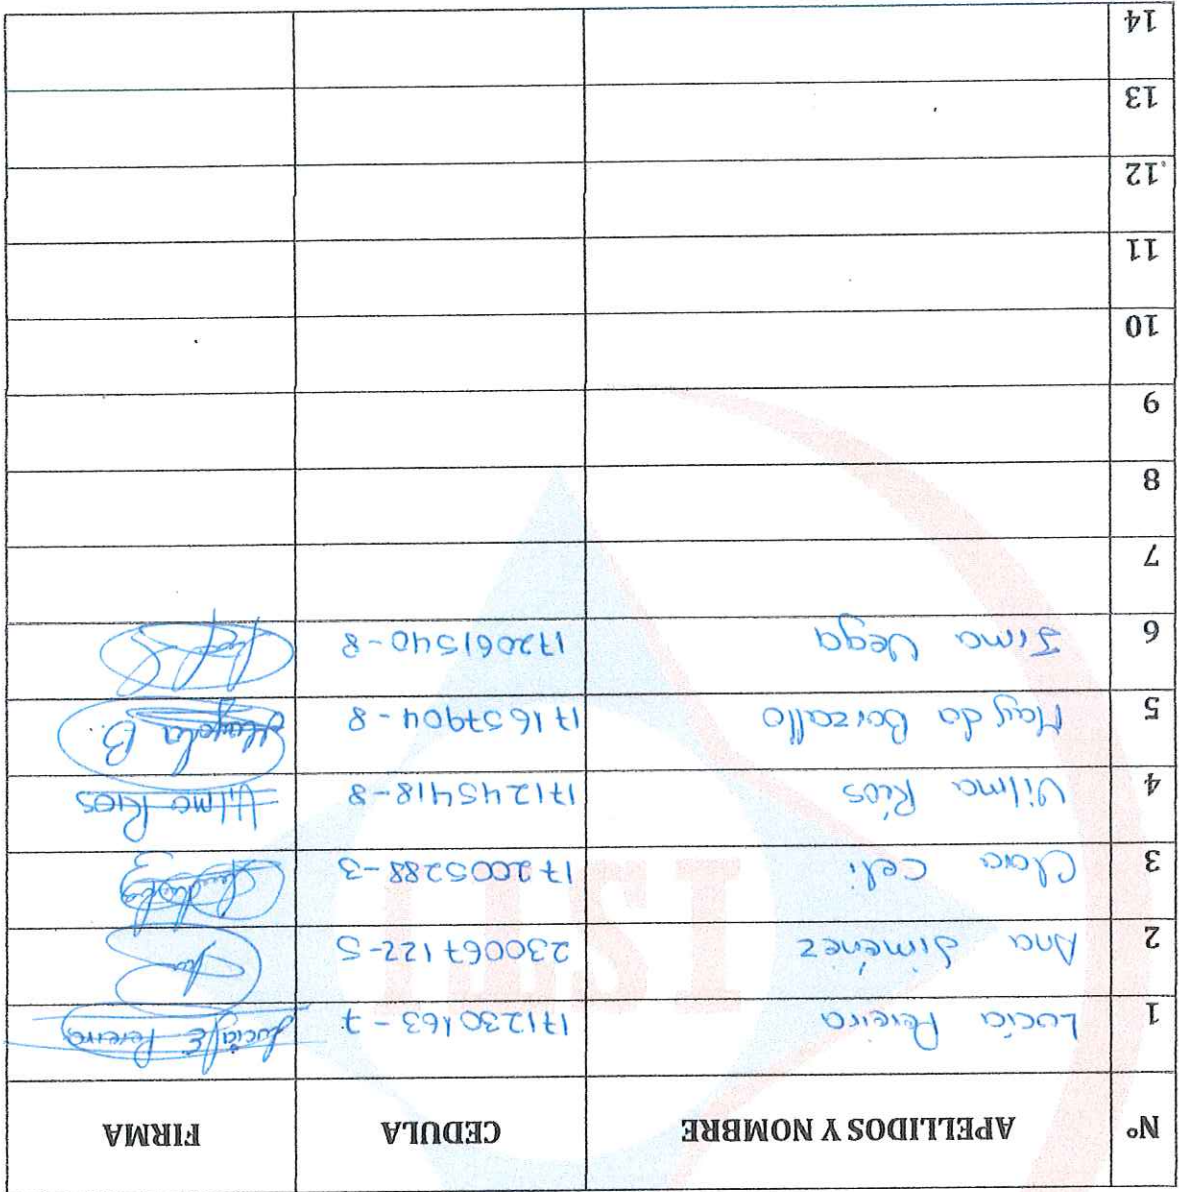 N° APELLIDOS Y NOMBRE CEDULA FIRMA
1 Lucía Pereira 171230163-7 Lucía E Pereira
2 Ana Jiménez 230067122-5
3 Clara Celi 172005288-3
4 Vilma Ríos 171245418-8 Vilma Ríos
5 Mayda Barzallo 171657904-8 B.
6 Vega 172061540-8
7
8
9
10
11
12
13
14
ISTI